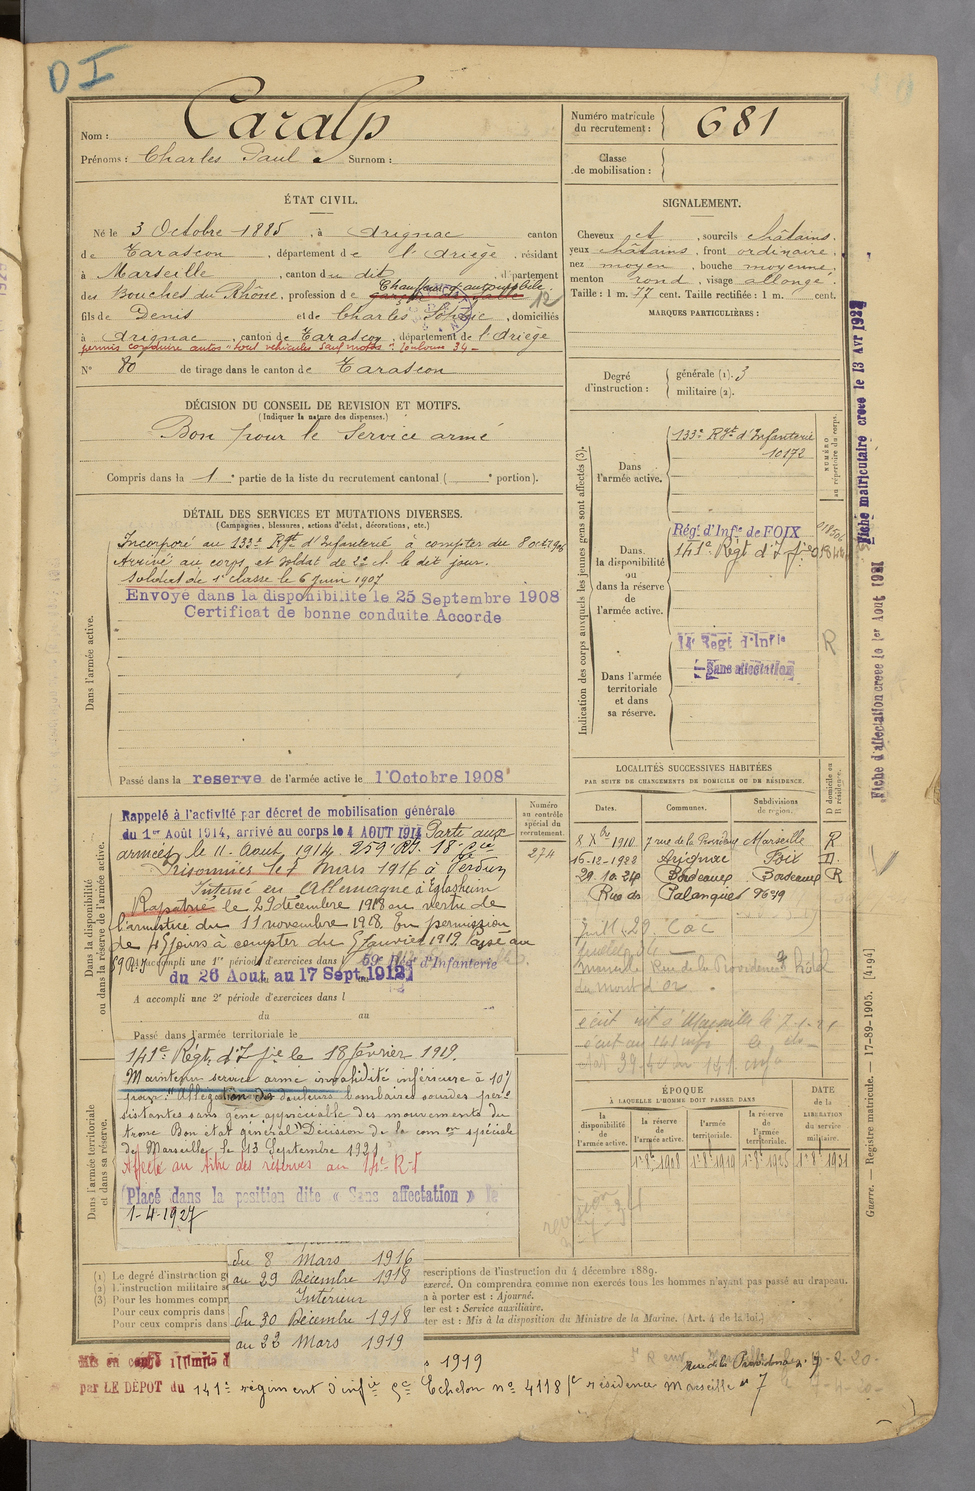 DI
Nom : Caralp
Prénoms : Charles Paul Surnom :
Numéro matricule du recrutement : 681
Classe de mobilisation :
ÉTAT CIVIL.
Né le 3 Octobre 1885, à Arignac canton
de Tarascon, département de l'Ariège, résidant
à Marseille, canton du dit, département
des Bouches du Rhône, profession de Chauffeur d'automobile
garçon de salle 12
fils de Denis et de Charles Sophie, domiciliés
à Arignac, canton de Tarascon, département de l'Ariège
permis conduire autos "tout véhicules sauf motos" Toulouse 34-
N° 80 de tirage dans le canton de Tarascon
SIGNALEMENT.
Cheveux et, sourcils châtains,
yeux châtains, front ordinaire,
nez moyen, bouche moyenne,
menton rond, visage allongé.
Taille : 1 m. 77 cent. Taille rectifiée : 1 m. cent.
MARQUES PARTICULIÈRES :
Degré d'instruction : générale (1). 3
militaire (2).
DÉCISION DU CONSEIL DE REVISION ET MOTIFS.
(Indiquer la nature des dispenses.)
Bon pour le Service armé
Compris dans la 1e partie de la liste du recrutement cantonal ( e portion).
DÉTAIL DES SERVICES ET MUTATIONS DIVERSES.
(Campagnes, blessures, actions d'éclat, décorations, etc.)
Dans l'armée active.
Incorporé au 133e Rgt d'Infanterie à compter du 8 oct 1906
Arrivé au corps et soldat de 2e cl. le dit jour.
Soldat de 1e classe le 6 Juin 1907
Envoyé dans la disponibilité le 25 Septembre 1908
Certificat de bonne conduite Accorde
Passé dans la reserve de l'armée active le 1 Octobre 1908
Indication des corps auxquels les jeunes gens sont affectés (3).
NUMÉRO au répertoire du corps.
Dans l'armée active.
133e Rgt d'Infanterie
10172
Dans la disponibilité ou dans la réserve de l'armée active.
Rég. d'Infie de FOIX
141e Régt d'Infie
Dans l'armée territoriale et dans sa réserve.
14e Regt d'Infie R
Sans affectation
Dans la disponibilité ou dans la réserve de l'armée active.
Numéro au contrôle spécial du recrutement.
274
Rappelé à l'activité par décret de mobilisation générale
du 1er Août 1914, arrivé au corps le 4 AOUT 1914 Parti aux
armées le 11 Aout 1914. 259e RI. 18e Cie
Prisonnier le 7 Mars 1916 à Verdun
Interné en Allemagne à Eglosheim
Rapatrié le 29 décembre 1918 en vertu de
l'armistice du 11 novembre 1918. En permission
de 45 jours à compter du Janvier 1919. Passé au
A accompli une 1e période d'exercices dans l 59e Rég. d'Infanterie
du 26 Aout au 17 Sept. 1912
A accompli une 2e période d'exercices dans l
du au
Passé dans l'armée territoriale le
Dans l'armée territoriale et dans sa réserve.
141e Régt d'Infie le 18 février 1919.
Maintenu service armé invalidité inférieure à 10%
pour : "Allégation de douleurs lombaires sourdes per-
sistantes sans gêne appréciable des mouvements du
tronc Bon état général" Décision de la comon spéciale
de Marseille, le 13 Septembre 1921
Affecté au titre des réserves au 14e R.I
Placé dans la position dite « Sans affectation » le
1-4-1927
LOCALITÉS SUCCESSIVES HABITÉES
PAR SUITE DE CHANGEMENTS DE DOMICILE OU DE RÉSIDENCE.
Dates. Communes. Subdivisions de région. D domicile ou R résidence.
8 Xbre 1910 7 rue de la Providence Marseille R
16-12-1922 Arignac Foix D.
29.10.24 Bordeaux Bordeaux R
Rue des Palanques
Marseille Rue de la Providence 9 hôtel
du mont d'or
ÉPOQUE
À LAQUELLE L'HOMME DOIT PASSER DANS
la disponibilité de l'armée active.
la réserve de l'armée active.
l'armée territoriale.
la réserve de l'armée territoriale.
DATE de la LIBÉRATION du service militaire.
1er 8bre 1908 1er 8bre 1919 1er 8bre 1925 1er 8bre 1931
revision
(1) Le degré d'instruction g
rescriptions de l'instruction du 4 décembre 1889.
(2) L'instruction militaire se
exercé. On comprendra comme non exercés tous les hommes n'ayant pas passé au drapeau.
(3) Pour les hommes compr
n à porter est : Ajourné.
Pour ceux compris dans
ter est : Service auxiliaire.
Pour ceux compris dans
ter est : Mis à la disposition du Ministre de la Marine. (Art. 4 de la loi.)
du 8 Mars 1916
au 29 Décembre 1918
Intérieur
du 30 Décembre 1918
au 22 Mars 1919
Mis en congé illimité d s 1919
rue de la Providence n° 7
par LE DÉPOT du 141e régiment d'infie 5e Echelon n° 4118 se résidence Marseille
Fiche matriculaire creee le 13 Avr 1922
Fiche d'affectation creee le 1er Aout 1921
Guerre. — Registre matricule. — 17-89-1905. [4194]